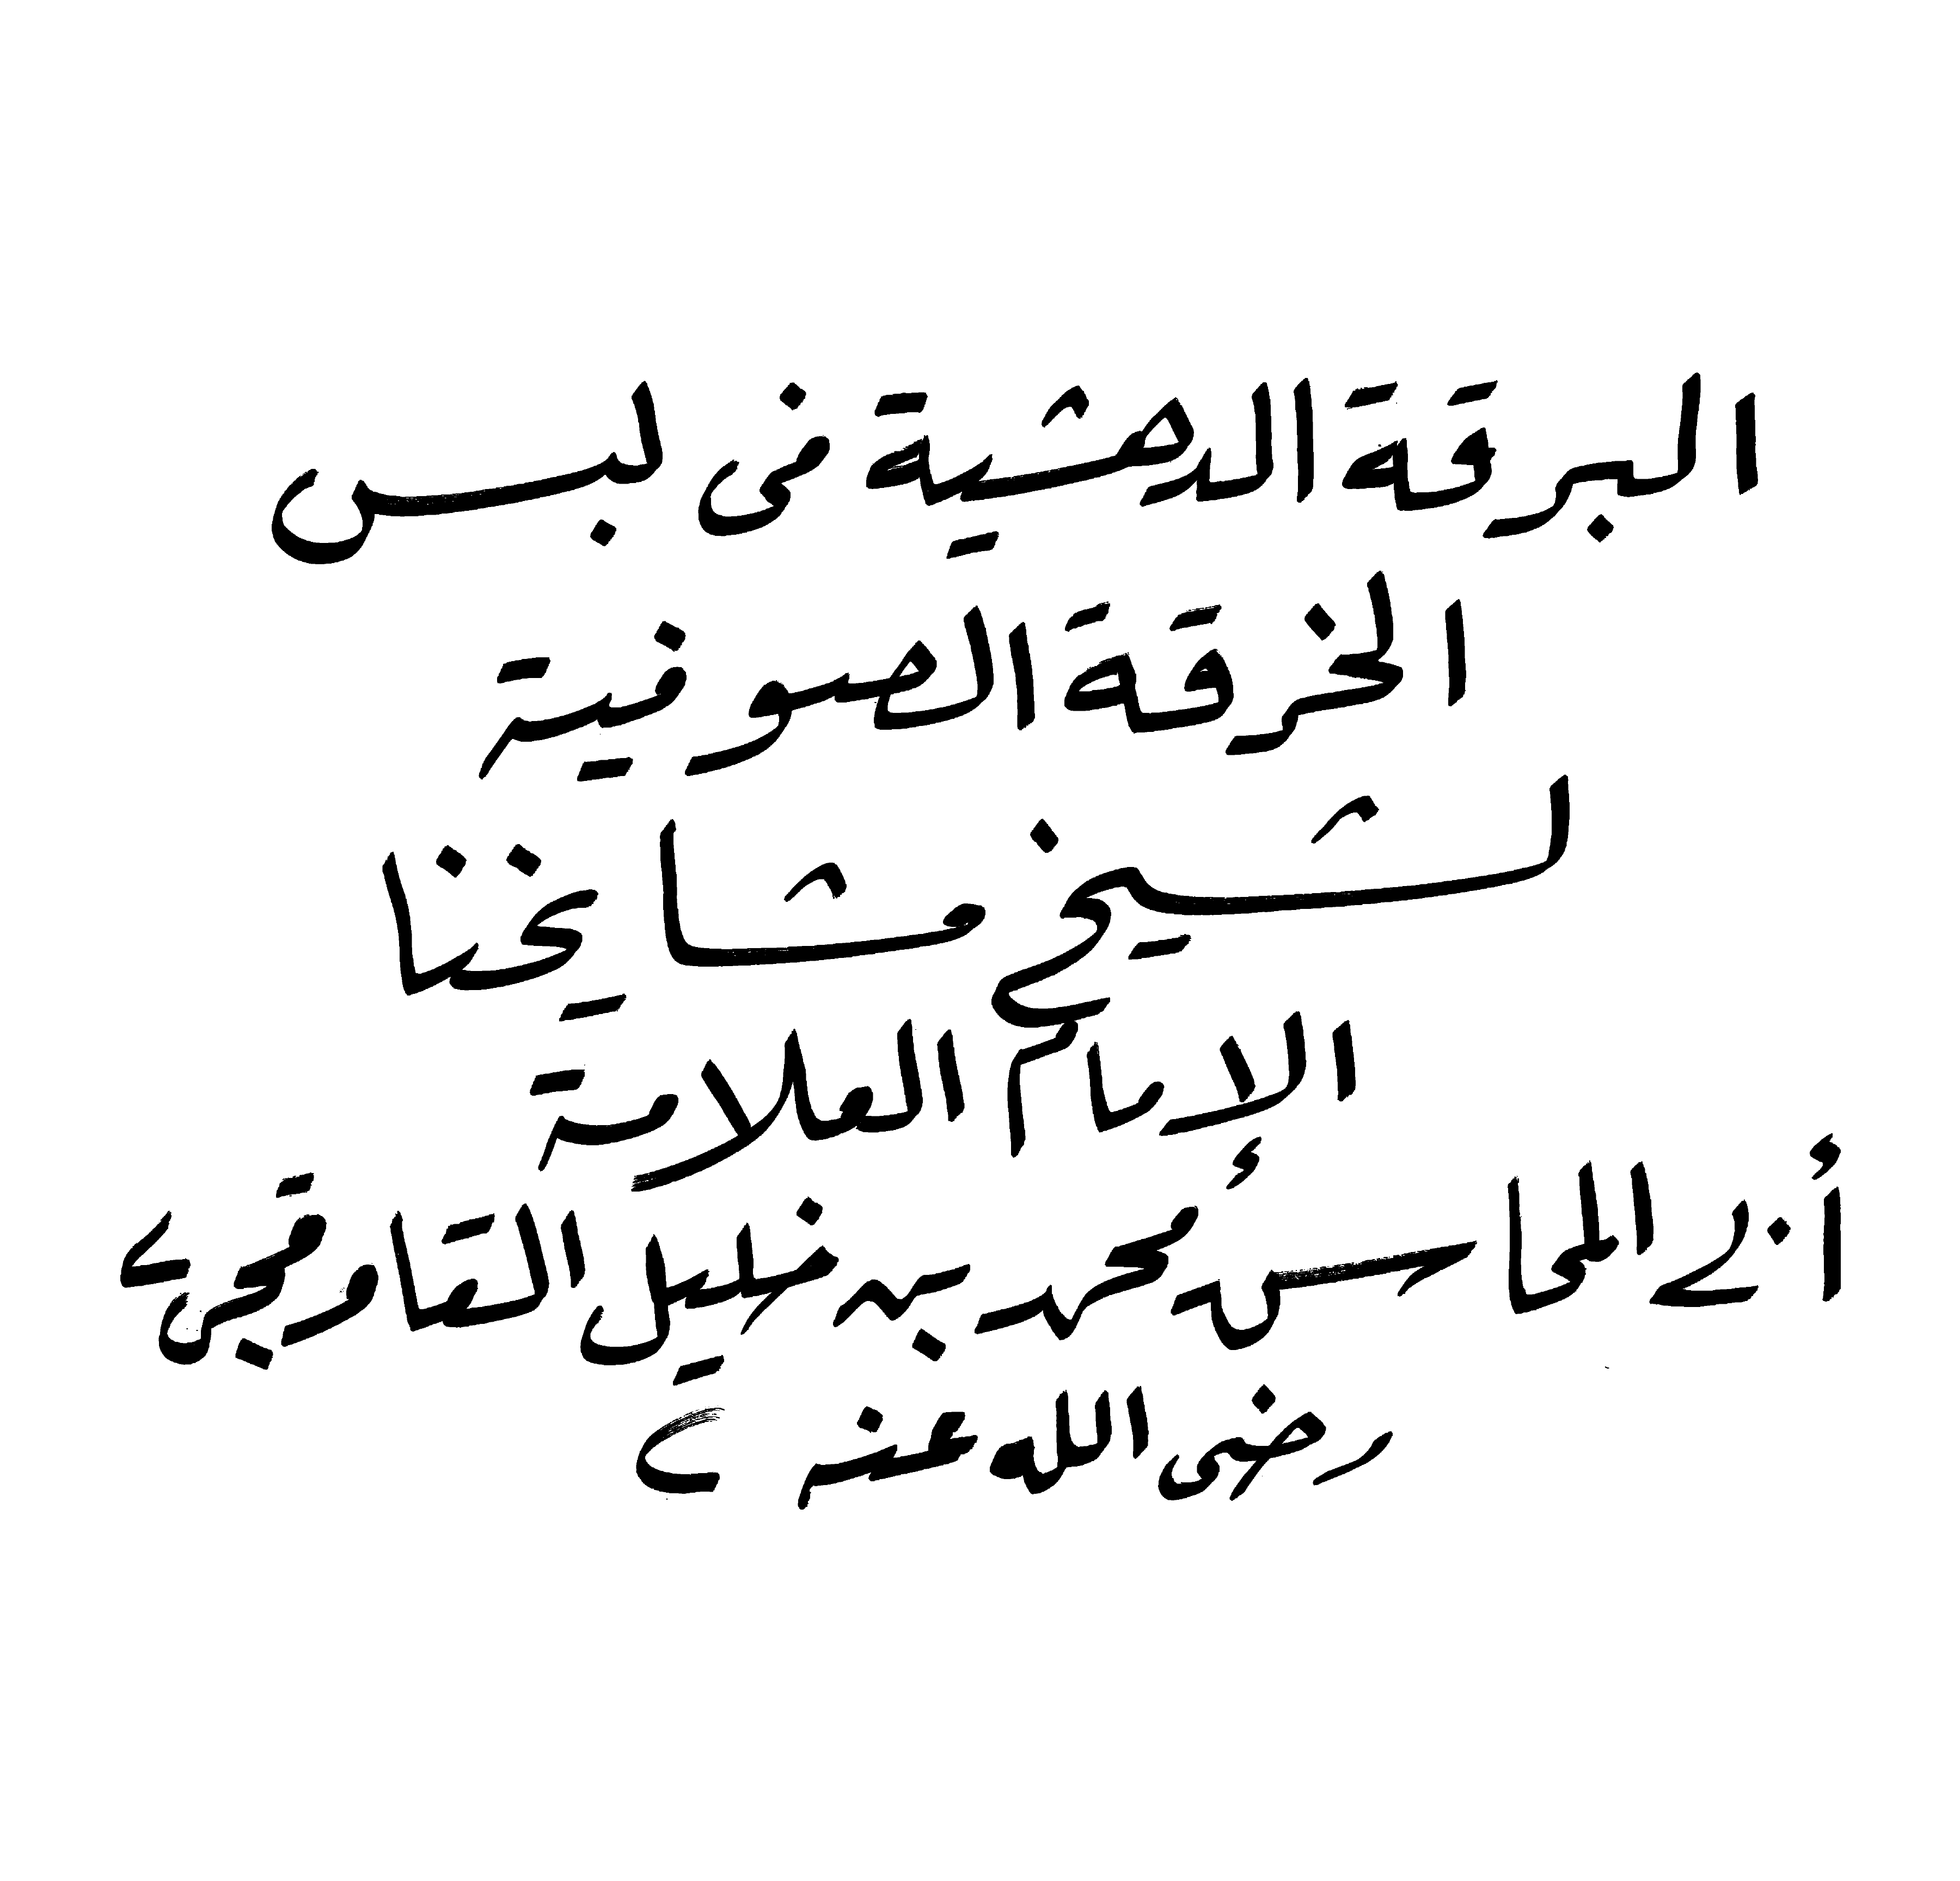 البرقة الدهشية فى لبس
الخرقة الصوفية
لشيخ مشايخنا
الإمام العلامة
أبى المحاسن محمد بن خليل القاوقجي
رضى الله عنه